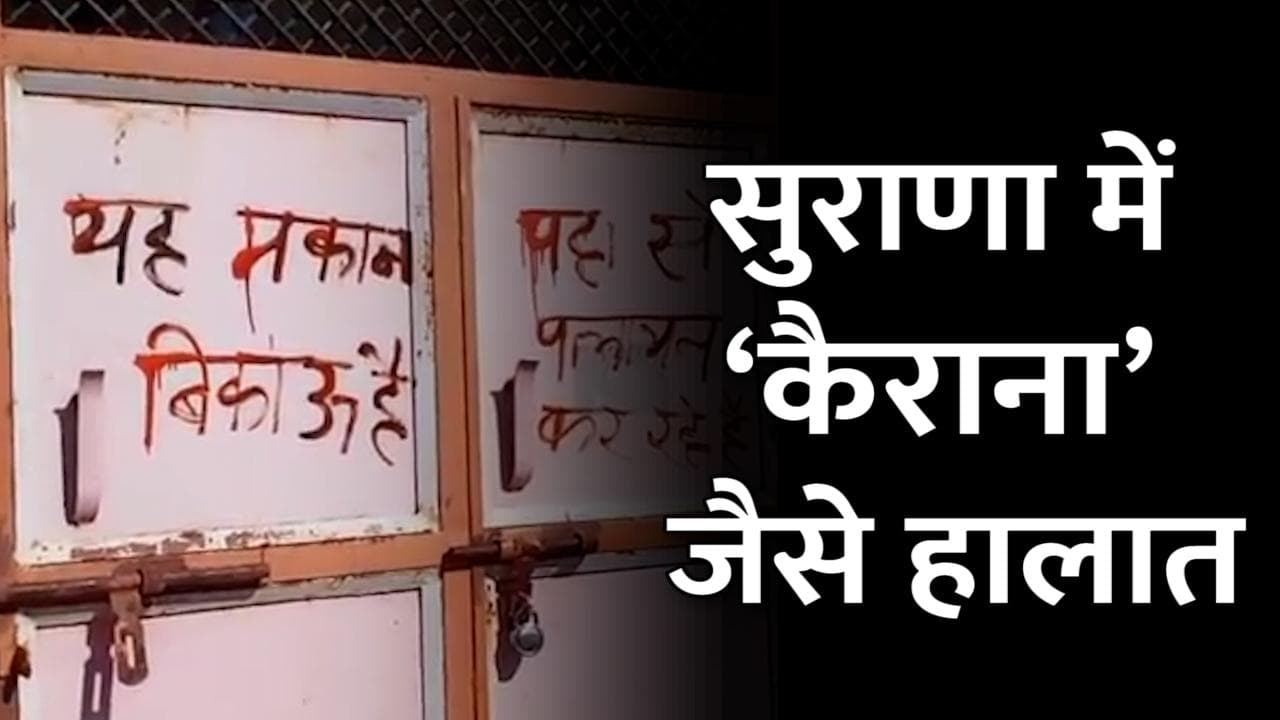 यह मकान
बिकाऊ है
पलायन
कर रहे हैं
सुराणा में
‘कैराना’
जैसे हालात